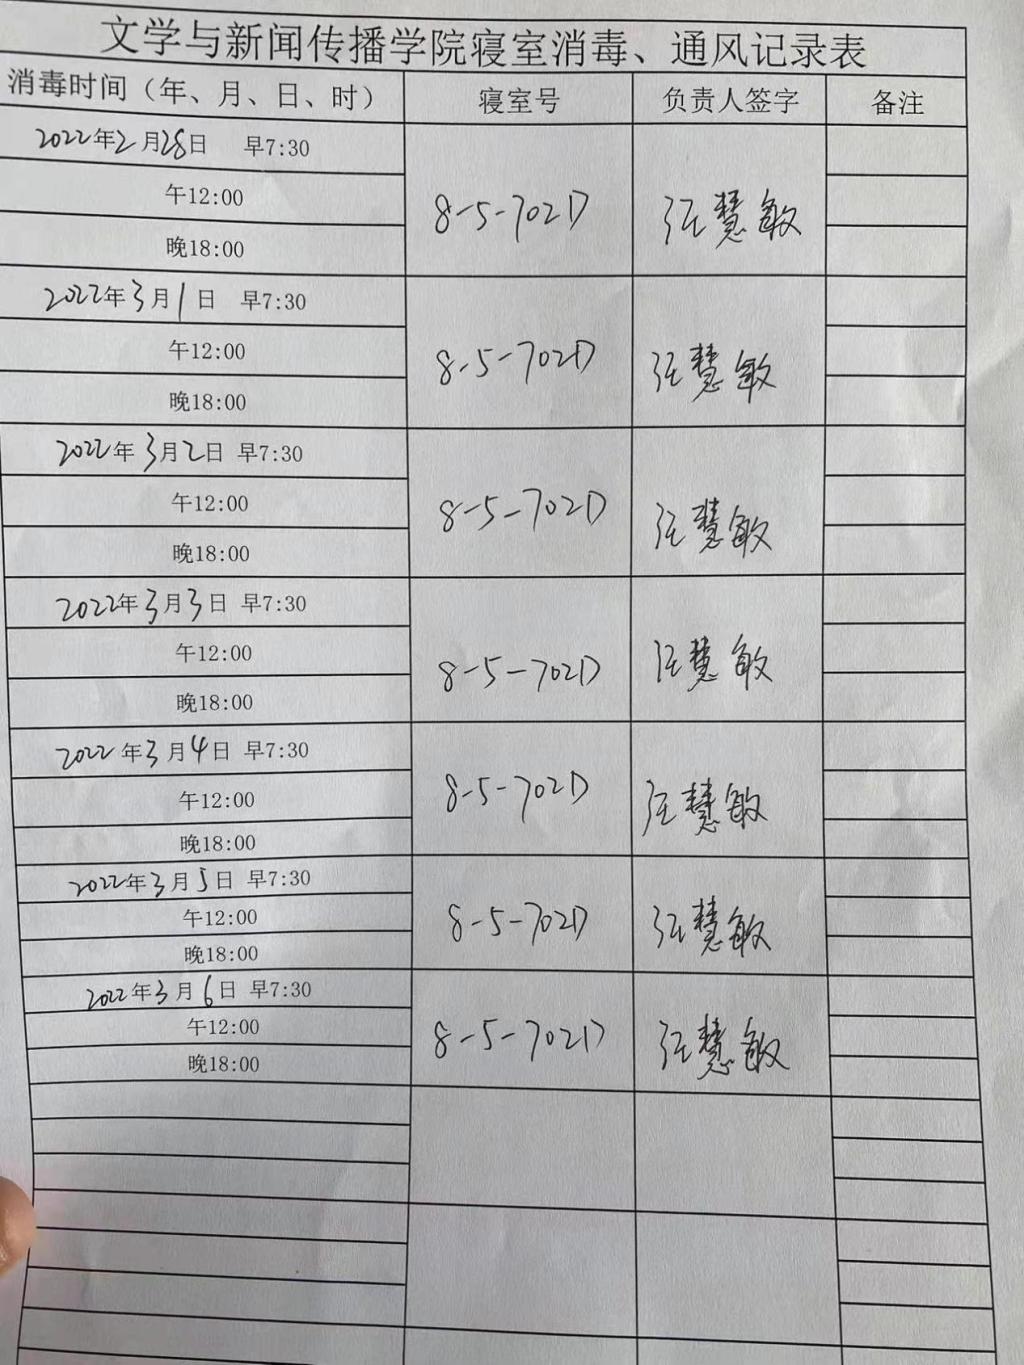 文学与新闻传播学院寝室消毒、通风记录表
消毒时间（年、月、日、时） 寝室号 负责人签字 备注
2022年2月28日 早7:30
午12:00 8-5-702D 汪慧敏
晚18:00
2022年3月1日 早7:30
午12:00 8-5-702D 汪慧敏
晚18:00
2022年3月2日 早7:30
午12:00 8-5-702D 汪慧敏
晚18:00
2022年3月3日 早7:30
午12:00 8-5-702D 汪慧敏
晚18:00
2022年3月4日 早7:30
午12:00 8-5-702D 汪慧敏
晚18:00
2022年3月5日 早7:30
午12:00 8-5-702D 汪慧敏
晚18:00
2022年3月6日 早7:30
午12:00 8-5-702D 汪慧敏
晚18:00